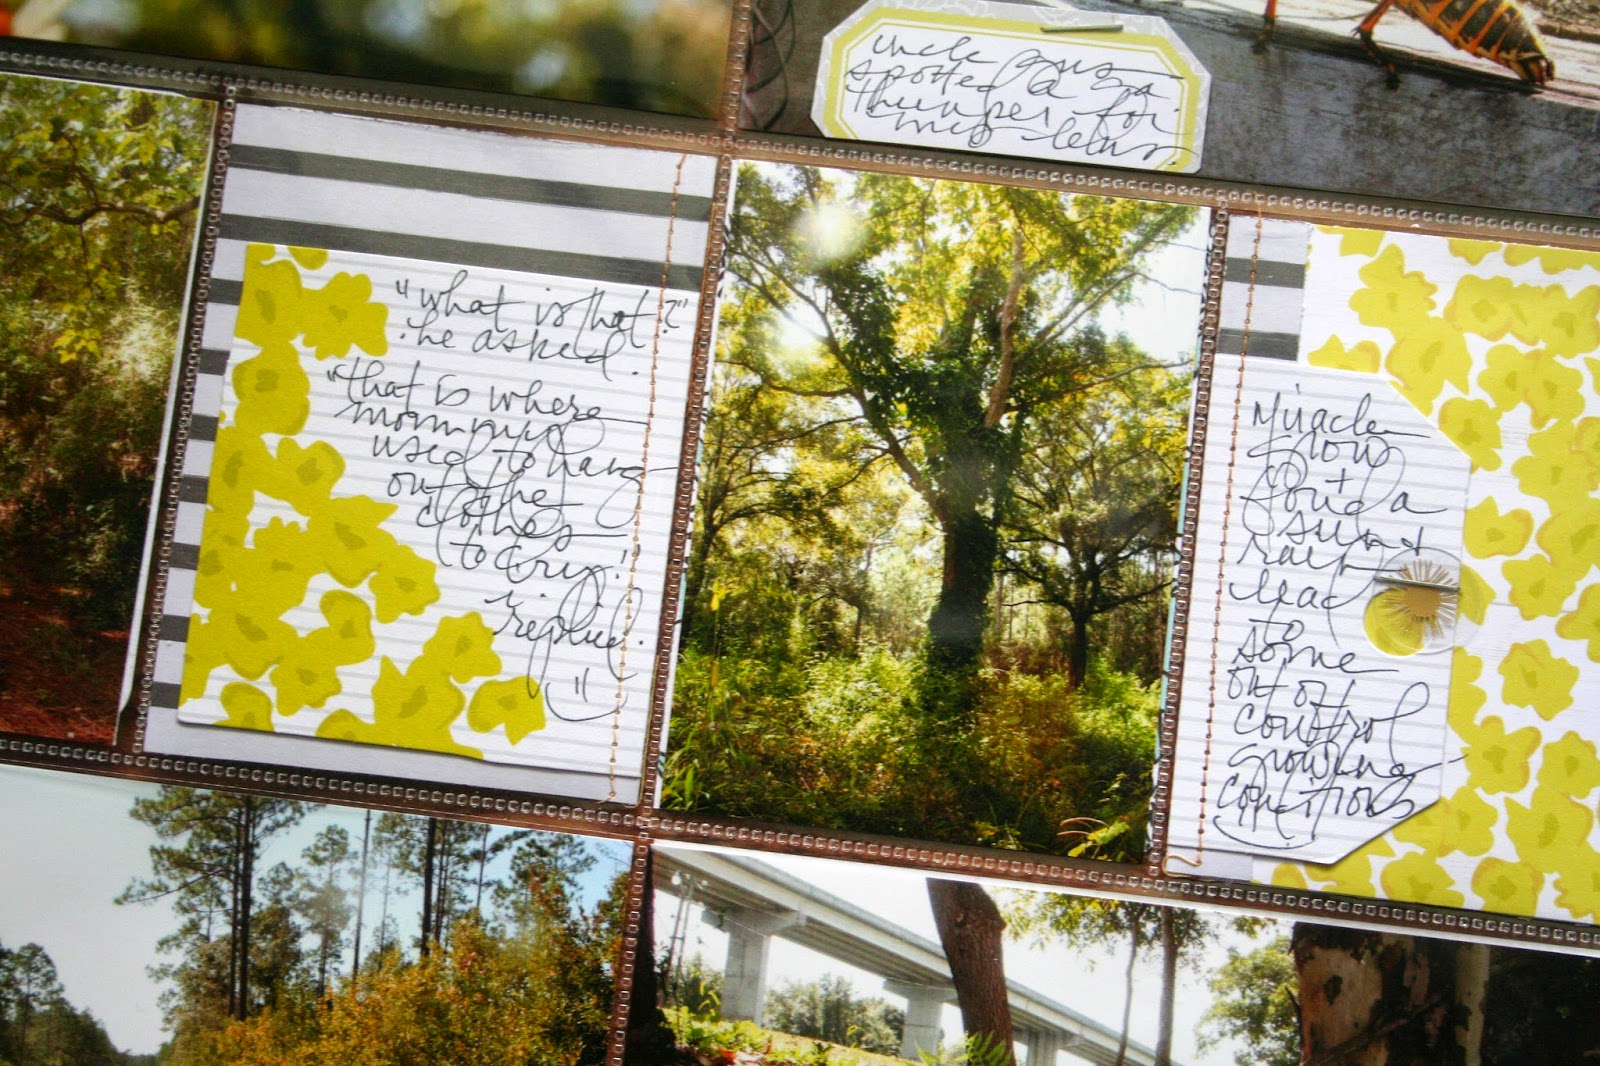 uncle
spotted a
thumper for
"what is that?"
he asked.
"that is where
mommy
used to hang
out the
clothes
to dry!"
i replied.
Miracle
grow
+
florida
sun +
rain
lead
to
some
out of
control
growing
conditions